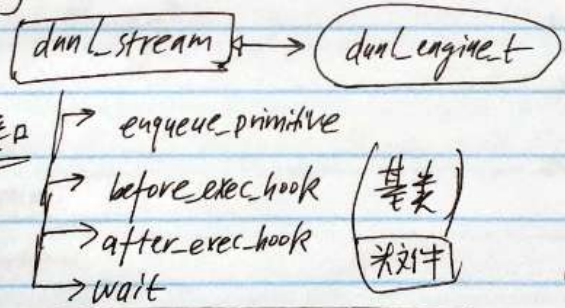 dnnl_stream dnnl_engine_t
enqueue_primitive
before_exec_hook
after_exec_hook
wait
基类
头文件